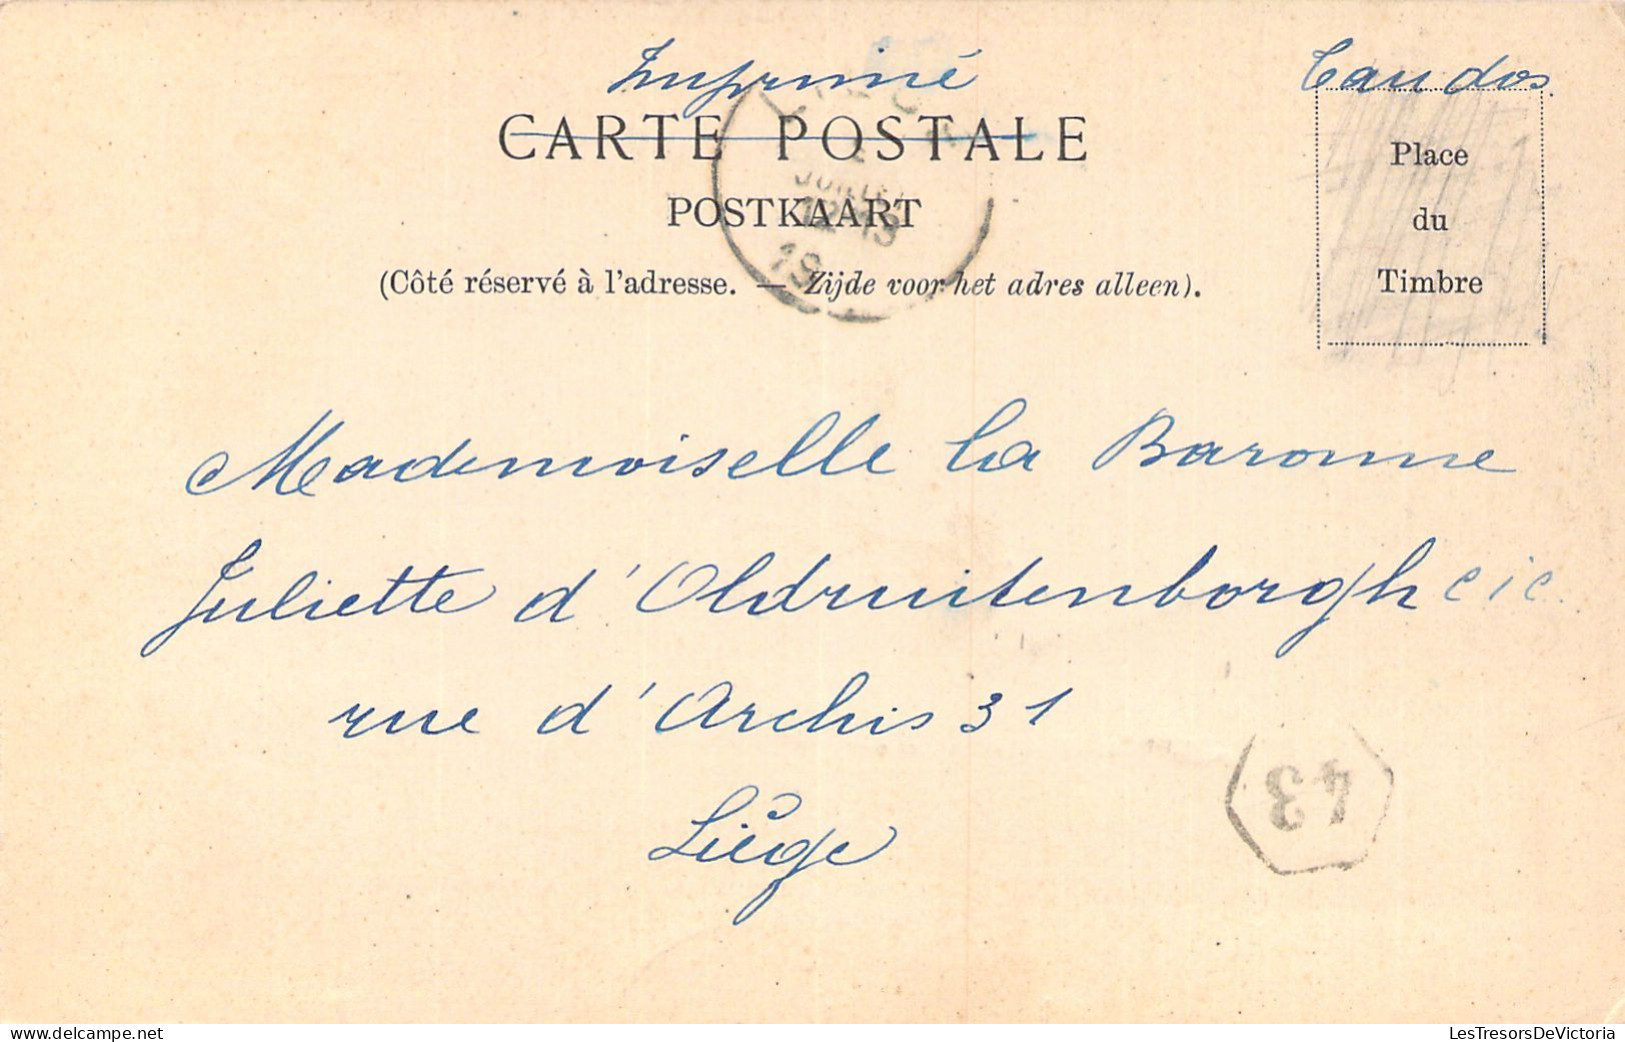 Imprimé
T au dos.
CARTE POSTALE
POSTKAART
(Côté réservé à l'adresse. — Zijde voor het adres alleen).
Place
du
Timbre
JUILLET
12-13
19
Mademoiselle la Baronne
Juliette d'Oldruitenborgh
rue d'Archis 31
Liège
43
www.delcampe.net
LesTresorsDeVictoria